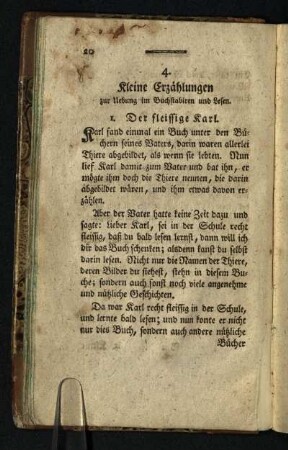 20
4.
Kleine Erzählungen
zur Uebung im Buchstabiren und Lesen.
1. Der fleissige Karl.
Karl fand einmal ein Buch unter den Bü-
chern seines Vaters, darin waren allerlei
Thiere abgebildet, als wenn sie lebten. Nun
lief Karl damit zum Vater und bat ihn, er
mögte ihm doch die Thiere nennen, die darin
abgebildet wären, und ihm etwas davon er-
zählen.
Aber der Vater hatte keine Zeit dazu und
sagte: lieber Karl, sei in der Schule recht
fleissig, daß du bald lesen lernst, dann will ich
dir das Buch schenken; alsdenn kanst du selbst
darin lesen. Nicht nur die Namen der Thiere,
deren Bilder du siehest, stehn in diesem Bu-
che; sondern auch sonst noch viele angenehme
und nützliche Geschichten.
Da war Karl recht fleissig in der Schule,
und lernte bald lesen; und nun konte er nicht
nur dies Buch, sondern auch andere nützliche
Bücher